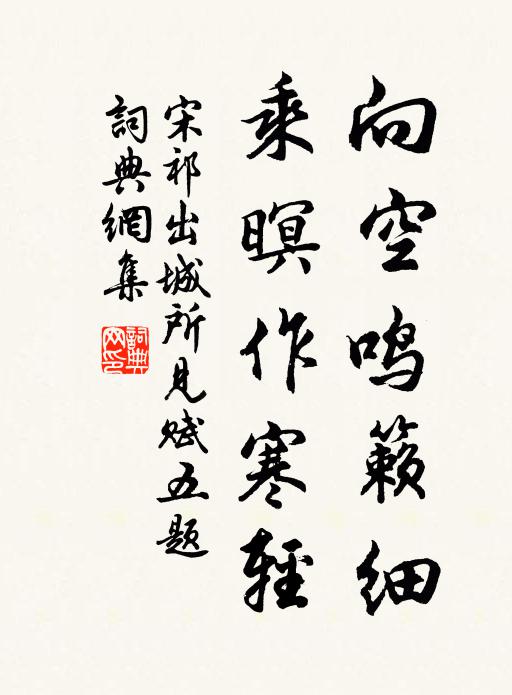 向空鸣籁细
乘暝作寒轻
宋祁出城所见赋五题
詞典網集
詞典网印